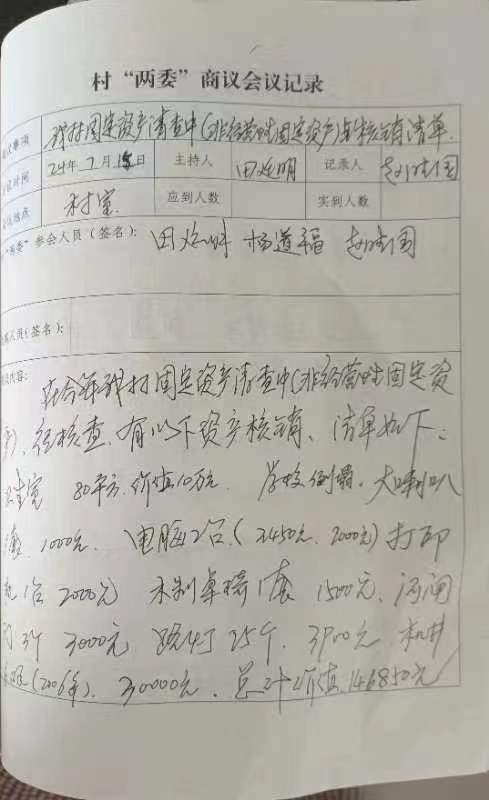 村“两委”商议会议记录
事项 我村固定资产清查中(非经营性固定资产)与核销清单.
时间 24年7月15日 主持人 田 明 记录人 赵 国
地点 村室 应到人数 实到人数
“两委”参会人员(签名): 田 明 杨道福 赵 国
人员(签名):
内容:
在今年我村固定资产清查中(非经营性固定资
产),经核查,有以下资产核销、清单如下:
室 80平方.价值10万元. 学校倒塌、大喇叭
1套 1000元、电脑2台(2450元、2000元)打印
机1台 2000元 木制桌椅1套 1500元、河闸
门3个 3000元 路灯25个、3900元、机井
(2006年)、30000元、总计价值146850元